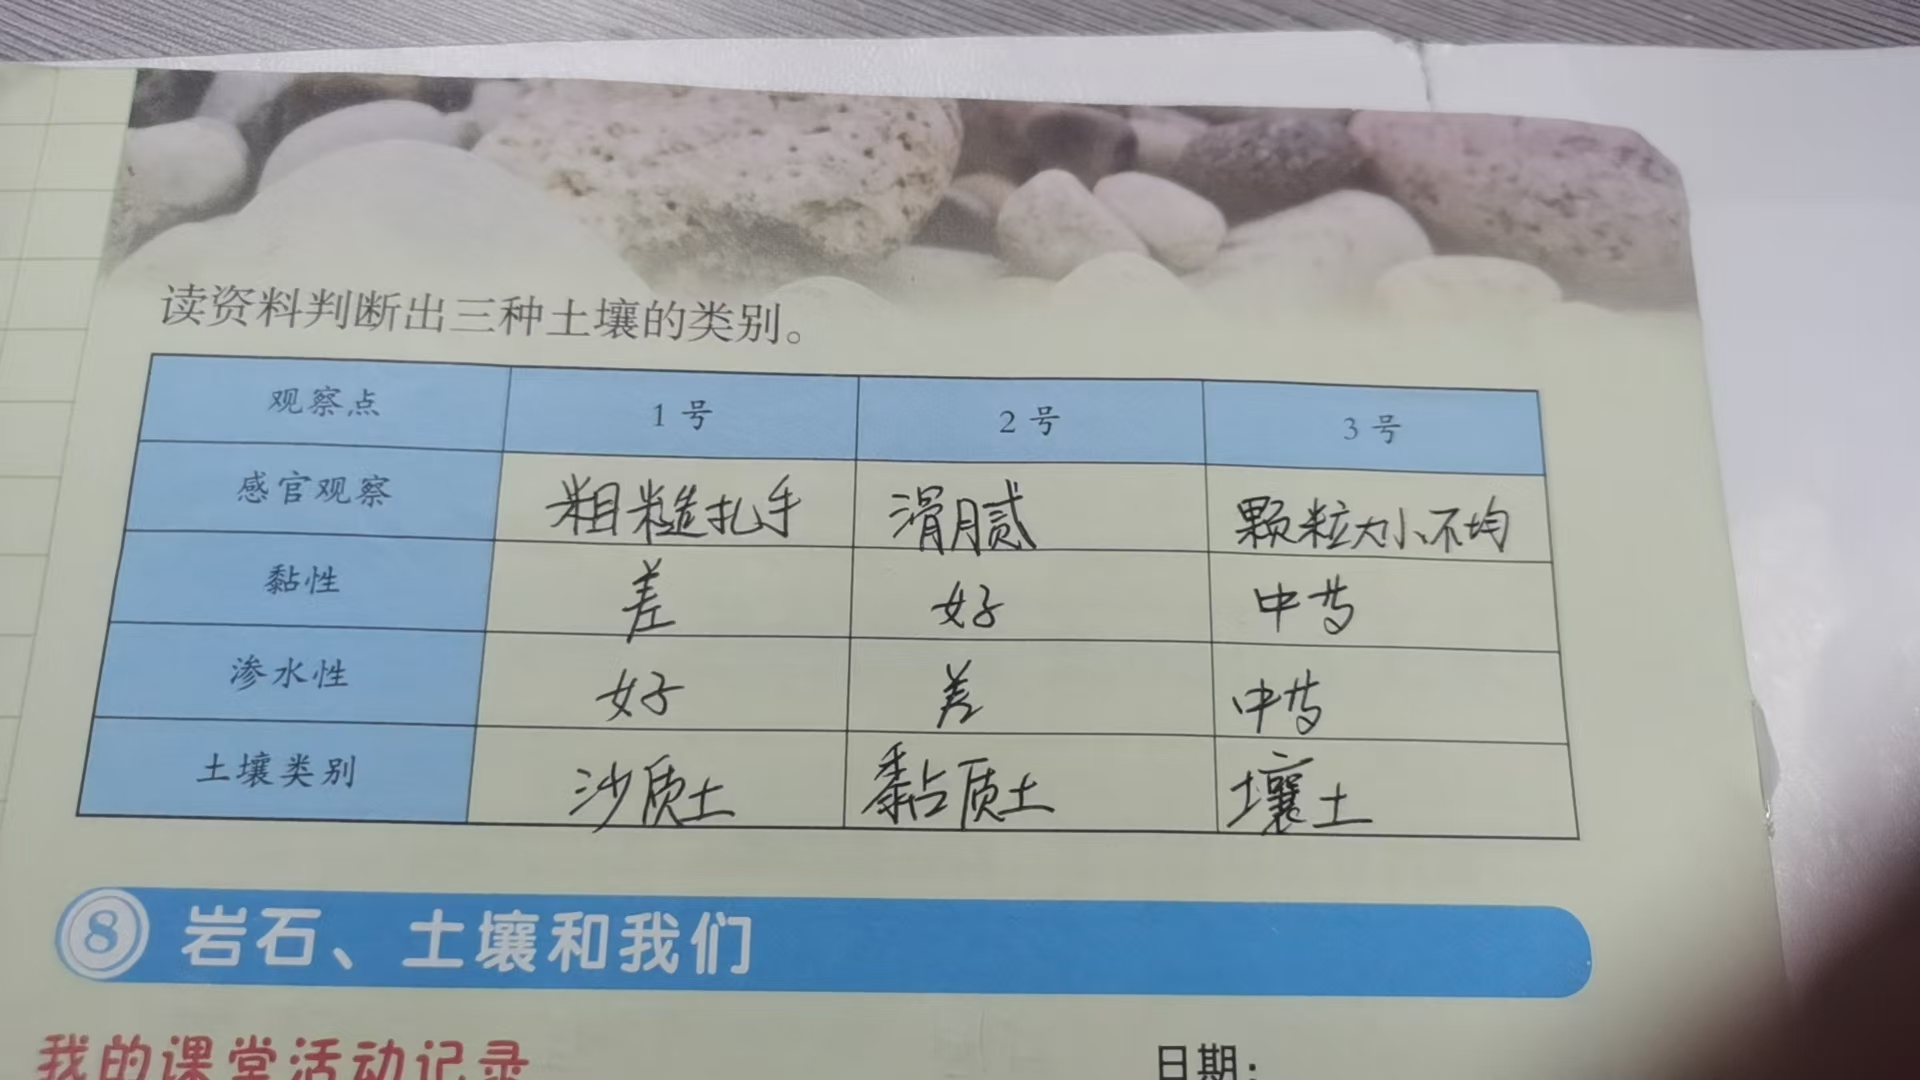 读资料判断出三种土壤的类别。
观察点 1号 2号 3号
感官观察 粗糙扎手 滑腻 颗粒大小不均
黏性 差 好 中等
渗水性 好 差 中等
土壤类别 沙质土 黏质土 壤土
8 岩石、土壤和我们
我的课堂活动记录 日期: